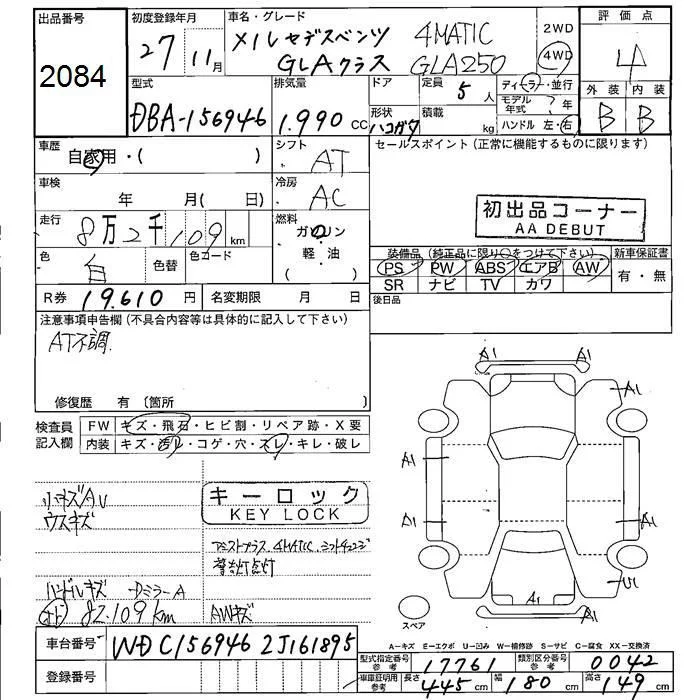 出品番号
2084
初度登録年月
27 11月
車名・グレード
メルセデスベンツ 4MATIC
GLAクラス GLA250
2WD
4WD
評価点
4
外装 内装
B B
型式
DBA-156946
排気量
1.990 cc
ドア
形状
ハコガタ
定員
5人
積載
kg
ディーラー・並行
モデル年式 年
ハンドル 左・右
車歴
自家用・( )
シフト
AT
セールスポイント(正常に機能するものに限ります)
車検
年 月( 日)
冷房
AC
初出品コーナー
AA DEBUT
走行
8万2千109km
燃料
ガソリン
軽・油
( )
色
白
色替
色コード
装備品(純正品に限り○をつけて下さい)
PS PW ABS エアB AW
SR ナビ TV カワ
新車保証書
有・無
後日品
R券 19.610円
名変期限 月 日
注意事項申告欄(不具合内容等は具体的に記入して下さい)
AT不調
修復歴 有〔箇所
検査員
記入欄
FW キズ・飛石・ヒビ割・リペア跡・X要
内装 キズ・汚れ・コゲ・穴・スレ・キレ・破レ
小キズAU
ウスキズ
キーロック
KEY LOCK
警告灯点灯
ハンドルキズ DミラーA
82.109km
AWキズ
A1 A1
A1
A1
A1 A1
U1
A1
A1
スペア
A-キズ E-エクボ U-凹み W-補修跡 S-サビ C-腐食 XX-交換済
車台番号 WDC1569462J161895
登録番号
型式指定番号
参考
17761
類別区分番号
参考
0042
車庫証明用
参考
長さ 445cm 幅 180cm 高さ 149cm